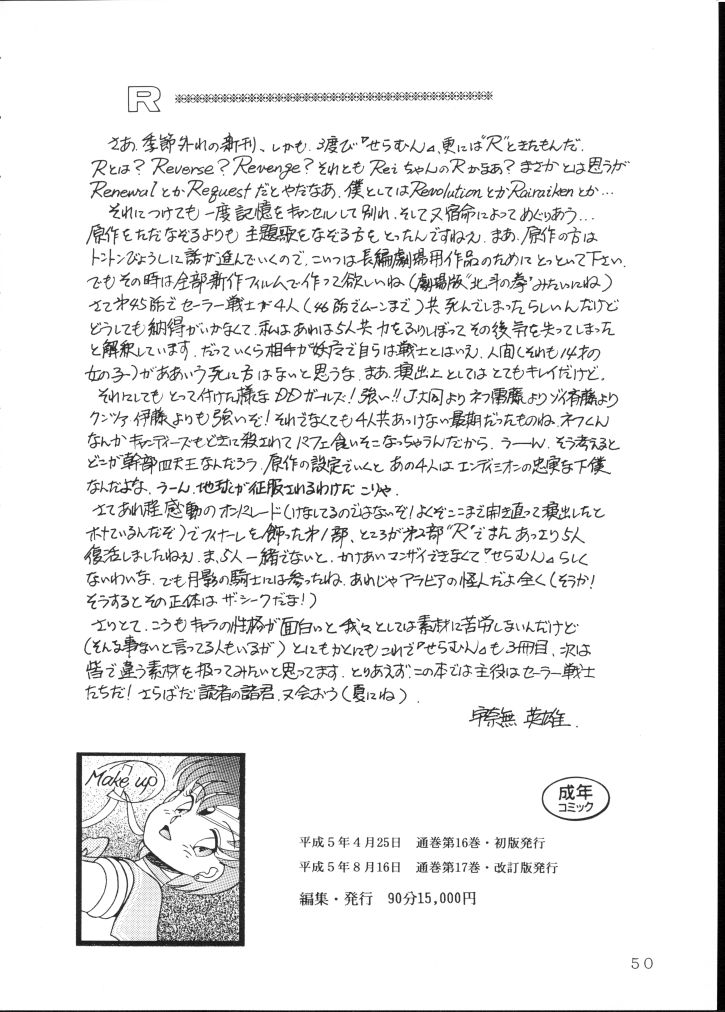 R
さあ、季節外れの新刊、しかも、3度び『せらむん』、更には"R"ときたもんだ。
Rとは? Reverse? Revenge? それとも ReiちゃんのRかなあ? まさかとは思うが
RenewalとかRequestだとやだなあ。僕としてはRevolutionとかRairaikenとか…
それにつけても一度記憶をキャンセルして別れ、そして又宿命によってめぐりあう…
原作をただなぞるよりも主題歌をなぞる方をとったんですねえ。まあ、原作の方は
トントンびょうしに話が進んでいくので、こいつは長編劇場用作品のためにとっといて下さい。
でもその時は全部新作フィルムで作って欲しいね(劇場版"北斗の拳"みたいにね)
さて第45話でセーラー戦士が4人(46話でムーンまで)共死んでしまったらしいんだけど
どうしても納得がいかなくて、私はあれは5人共力をふりしぼってその後気を失ってしまった
と解釈しています。だっていくら相手が妖魔で自らは戦士とはいえ、人間(それも14才の
女の子)がああいう死に方はないと思うな。まあ、演出上としてはとてもキレイだけど。
それにしてもとって付けた様なDDガールズ!強い!!J大同よりネフ雷藤よりゾイ斉藤より
クンツァ伊藤よりも強いぞ!それでなくても4人共あっけない最期だったものね。ネフくん
なんかキャンディーズもどきに殺されてパフェ食いそこなっちゃうんだから。うーーん、そう考えると
どこが幹部四天王なんだろう。原作の設定でいくとあの4人はエンディミオンの忠実な下僕
なんだよな。うーん、地球が征服されるわけだこりゃ。
さてあれ程感動のオンパレード(けなしてるのではないぞ!よくぞここまで開き直って演出したと
ホメているんだぞ)でフィナーレを飾った第1部、ところが第2部"R"でまたあっさり5人
復活しましたねえ。ま、5人一緒でないと、かけあいマンザイできなくて『せらむん』らしく
ないわいな。でも月影の騎士には参ったね。あれじゃアラビアの怪人だよ全く(そうか!
そうするとその正体はザ・シークだな!)
さりとて、こうもキャラの性格が面白いと我々としては素材に苦労しないんだけど
(そんな事ないと言ってる人もいるが)とにもかくにもこれで『せらむん』も3冊目、次は
皆で違う素材を扱ってみたいと思ってます。とりあえず、この本では主役はセーラー戦士
たちだ!さらばだ読者の諸君、又会おう(夏にね)
宇奈無 英雄
Make up
成年
コミック
平成5年4月25日 通巻第16巻・初版発行
平成5年8月16日 通巻第17巻・改訂版発行
編集・発行 90分15,000円
50